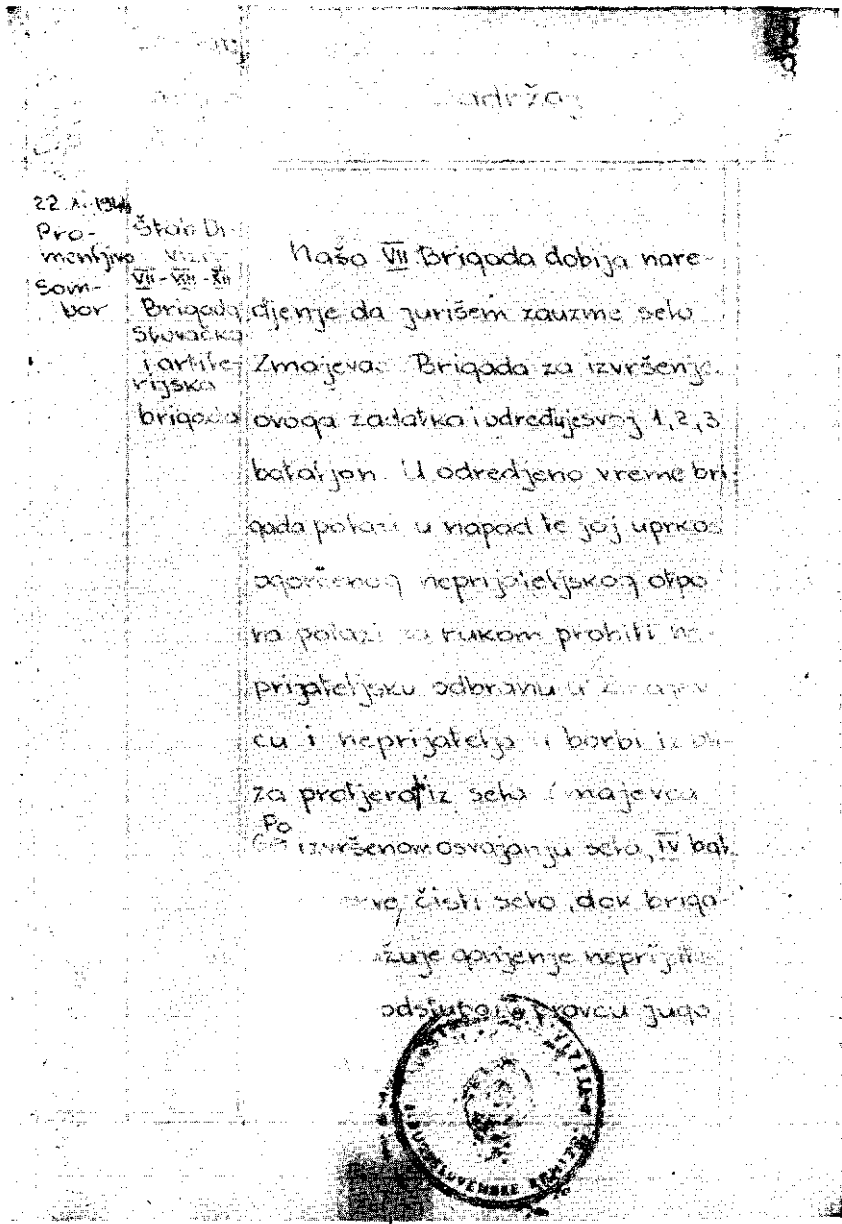 Sadržaj
22.X.1944
Pro-
mentjivo
Som-
bor
Štab Di-
VII-VIII-XII
Brigada
Slovačka
i artile-
rijska
brigada
Naša VII Brigada dobija nare-
djenje da jurišem zauzme selo
Zmajevac Brigada za izvršenje
ovoga zadatka i određuje svoj 1, 2, 3
bataljon. U odredjeno vreme bri-
gada polazi u napad te joj uprkos
ogorčenog neprijateljskog otpo
ra polazi za rukom probiti ne-
prijateljsku odbranu u Zmajev
cu i neprijatelja u borbi
za protjerat iz sela Zmajevca
Po
izvršenom osvajanju sela, IV bat.
čisti selo, dok briga-
gonjenje neprijate
pravcu jugo
JUGOSLOVENSKE ARMIJE